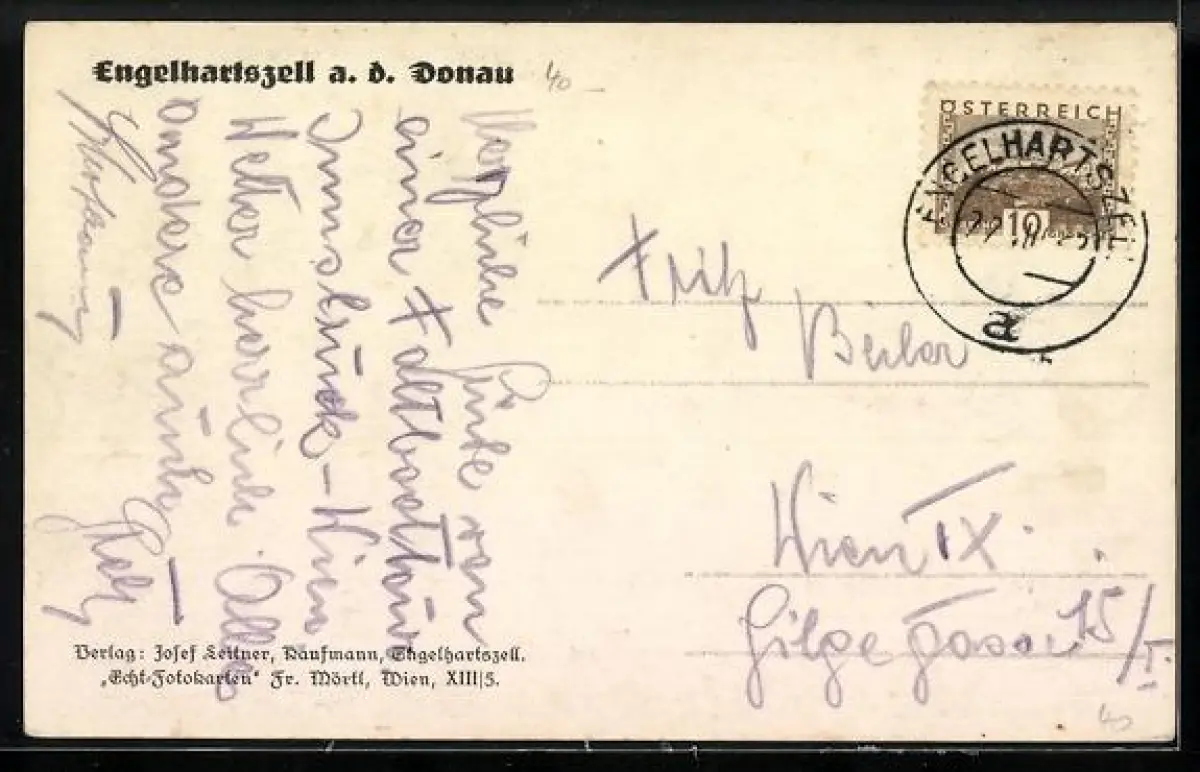 Engelhartszell a. d. Donau
40
Herzliche Grüße von
einer Faltboottour
Innsbruck-Wien
Wetter herrlich. Alles
andere auch
ÖSTERREICH
10
ENGELHARTSZELL
Fritz
Wien IX.
Gilgegasse 15/I.
Verlag: Josef Leitner, Kaufmann, Engelhartszell.
„Echt-Fotokarten" Fr. Mörtl, Wien, XIII/5.
40